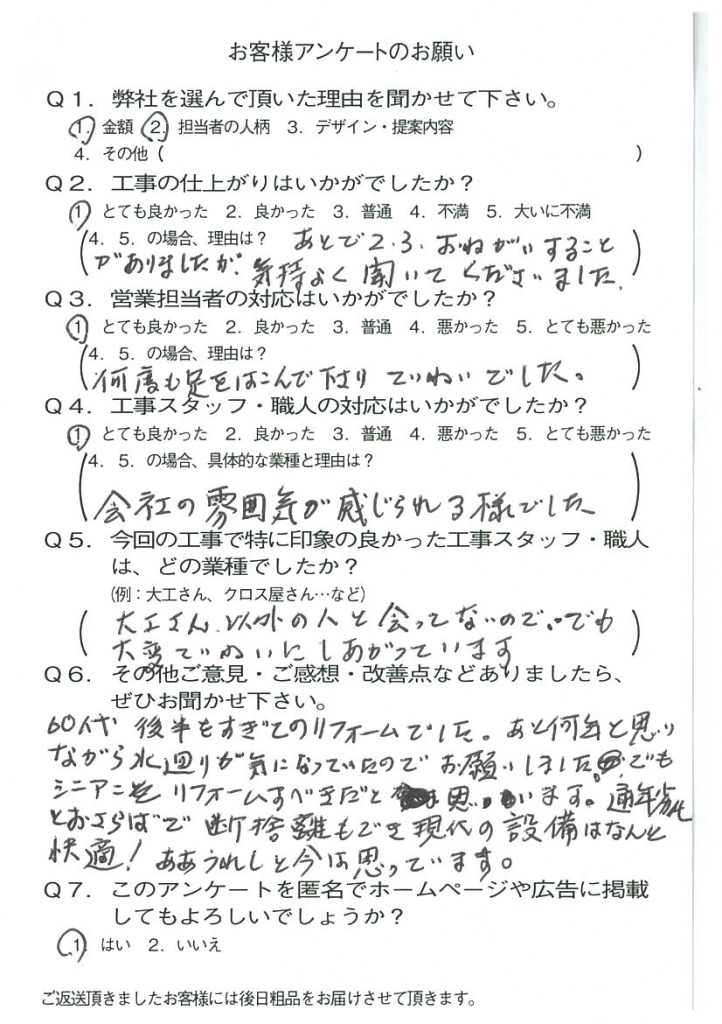 お客様アンケートのお願い
Q1. 弊社を選んで頂いた理由を聞かせて下さい。
1. 金額 2. 担当者の人柄 3. デザイン・提案内容
4. その他 ( )
Q2. 工事の仕上がりはいかがでしたか？
1 とても良かった 2. 良かった 3. 普通 4. 不満 5. 大いに不満
(4. 5. の場合、理由は？ あとで2.3.おねがいすること
がありましたが、気持よく聞いてくださいました。)
Q3. 営業担当者の対応はいかがでしたか？
1 とても良かった 2. 良かった 3. 普通 4. 悪かった 5. とても悪かった
(4. 5. の場合、理由は？
何度も足をはこんで下さり ていねいでした。)
Q4. 工事スタッフ・職人の対応はいかがでしたか？
1 とても良かった 2. 良かった 3. 普通 4. 悪かった 5. とても悪かった
(4. 5. の場合、具体的な業種と理由は？
会社の雰囲気が感じられる様でした)
Q5. 今回の工事で特に印象の良かった工事スタッフ・職人
は、どの業種でしたか？
(例：大工さん、クロス屋さん…など)
(大工さん以外の人と会ってないので…でも
大変ていねいにしあがっています)
Q6. その他ご意見・ご感想・改善点などありましたら、
ぜひお聞かせ下さい。
60代 後半もすぎてのリフォームでした。あと何年と思い
ながら水廻りが気になっていたのでお願いしました。でも
シニアこそリフォームすべきだと 思います。
とおさらばで断捨離もでき現代の設備はなんと
快適！ああうれしと今は思っています。
Q7. このアンケートを匿名でホームページや広告に掲載
してもよろしいでしょうか？
1. はい 2. いいえ
ご返送頂きましたお客様には後日粗品をお届けさせて頂きます。